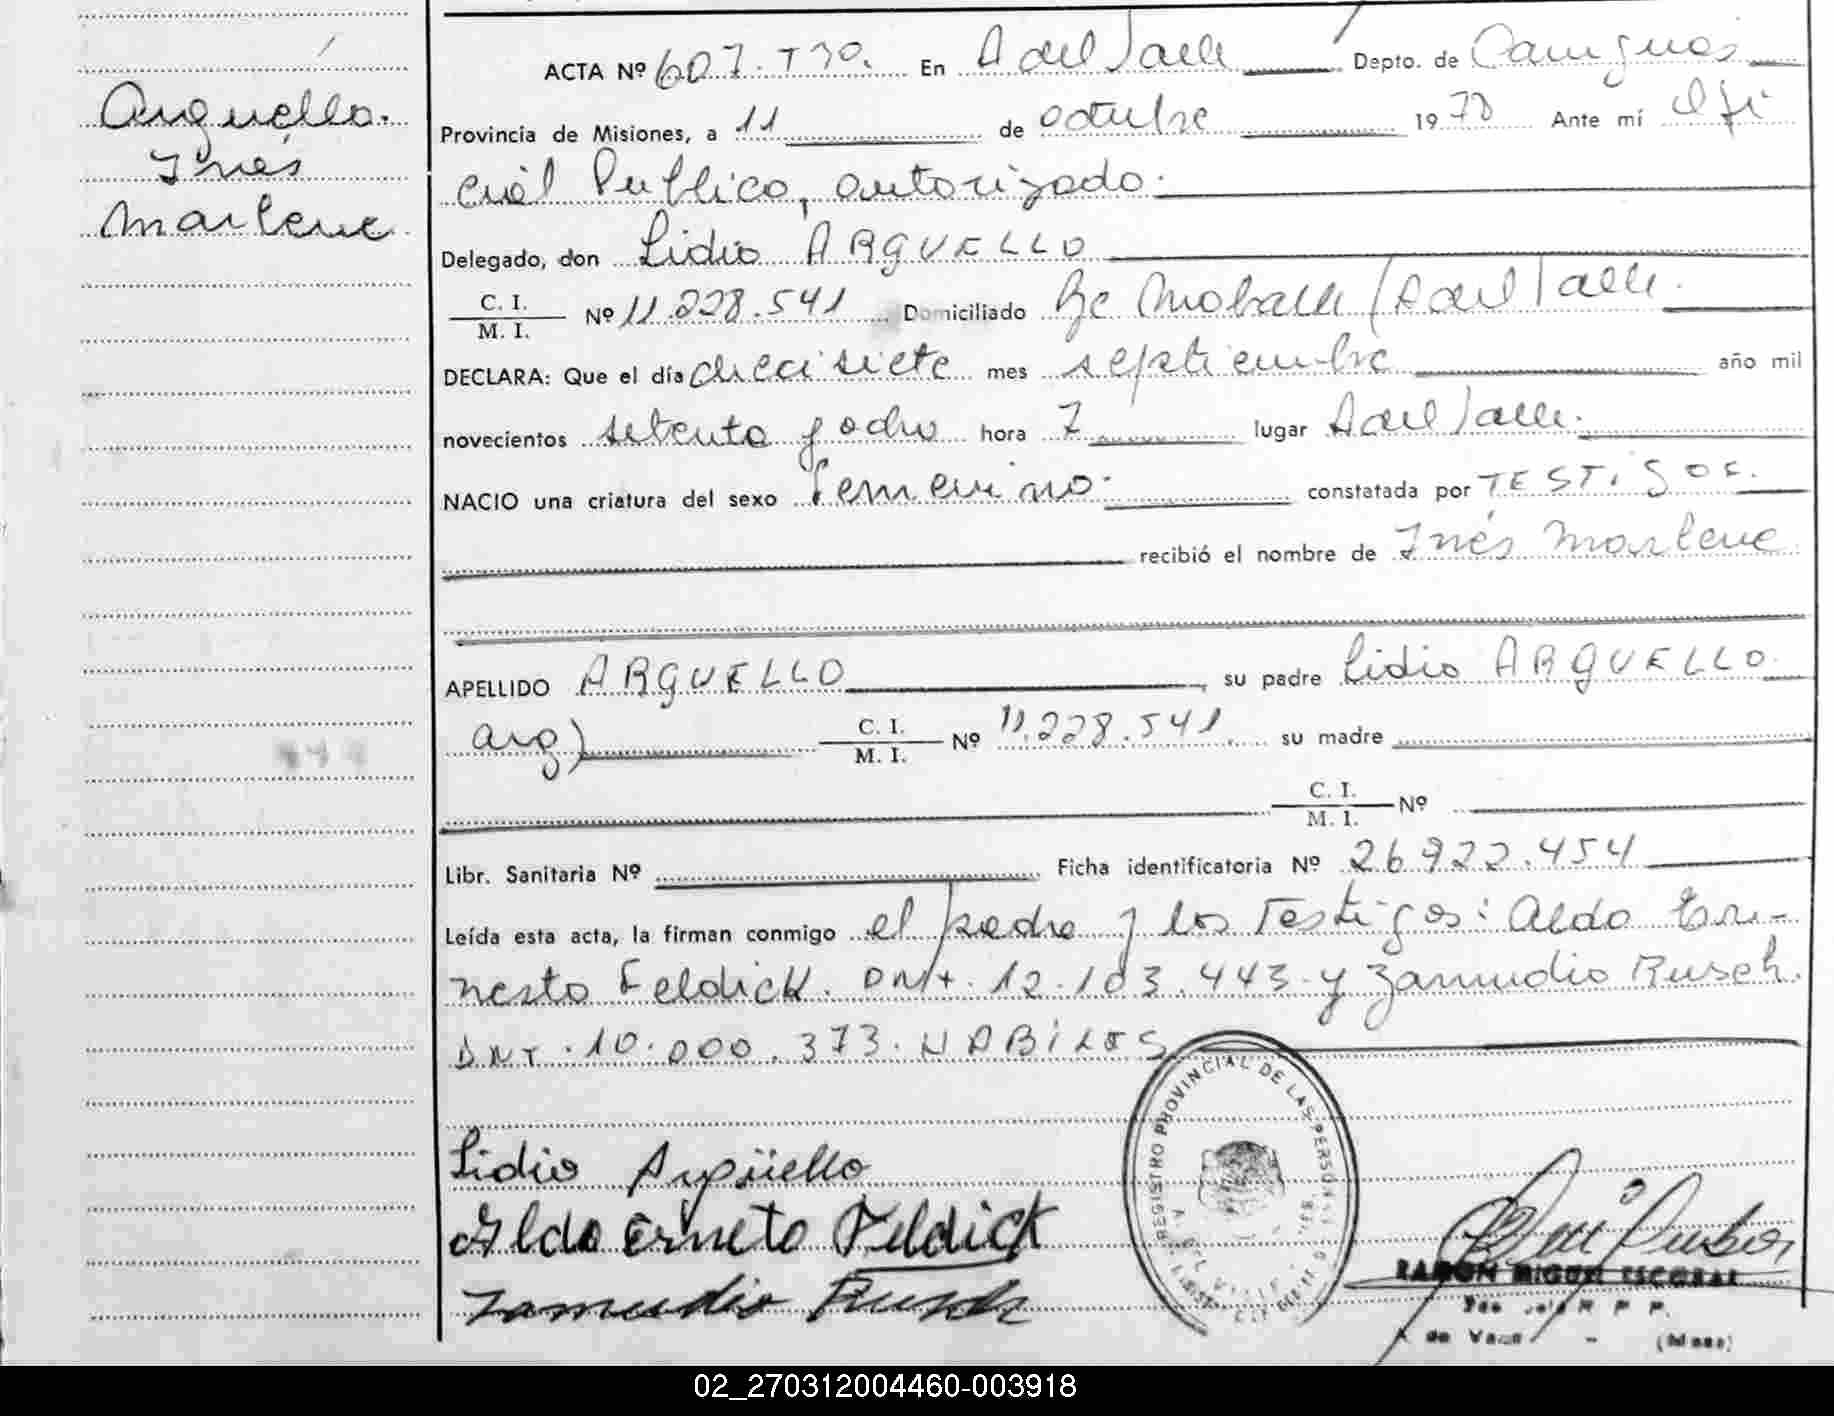 Arguello.
Inés
Marlene
ACTA Nº 607. T30. En A del Valle Depto. de Cainguas
Provincia de Misiones, a 11 de octubre 1978 Ante mí Ofi
cial Publico, autorizado.
Delegado, don Lidio ARGUELLO
C. I.
M. I. Nº 11.228.541 Domiciliado / A del Valle.
DECLARA: Que el día diecisiete mes septiembre año mil
novecientos setenta y ocho hora 7 lugar A del Valle.
NACIO una criatura del sexo femenino. constatada por TESTIGOS.
recibió el nombre de Inés Marlene
APELLIDO ARGUELLO, su padre Lidio ARGUELLO.
arg) C. I.
M. I. Nº 11.228.541. su madre
C. I.
M. I. Nº
Libr. Sanitaria Nº Ficha identificatoria Nº 26.922.454
Leída esta acta, la firman conmigo el padre y los Testigos: Aldo Er-
nesto Feldick. DNI. 12.103.443. y Zamudio Rusch.
DNI. 10.000.373. HABILES
Lidio Argüello
Aldo Erneto Feldick
Zamudio Rusch
REGISTRO PROVINCIAL DE LAS PERSONAS
RAMON MIGUEL ESCOBAR
(Mnes)
02_270312004460-003918